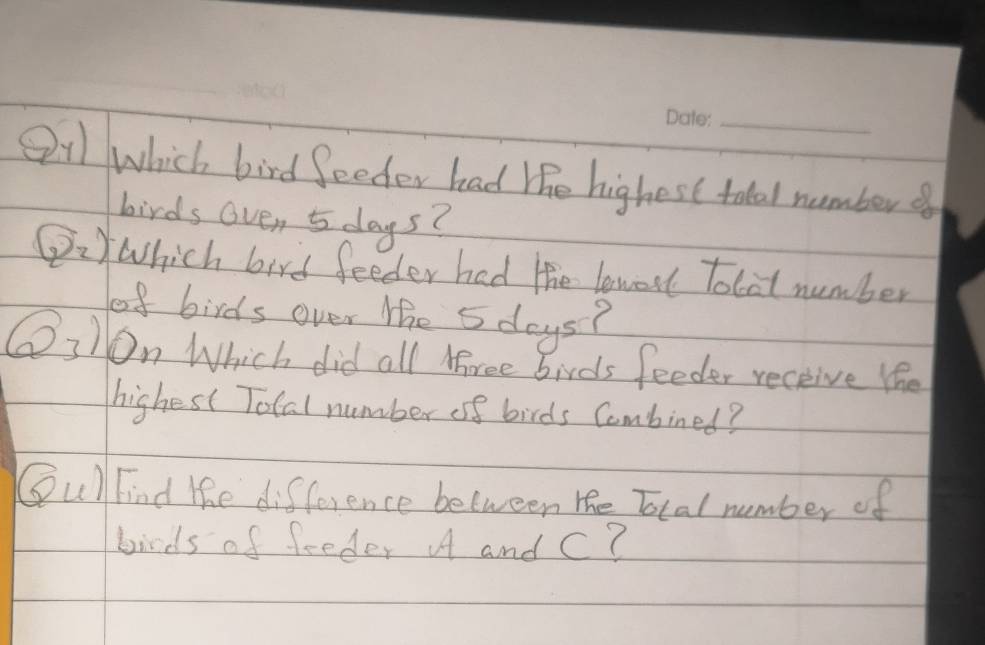 Date:
Q1) Which bird feeder had the highest total number of
birds over 5 days?
Q2) Which bird feeder had the lowest Total number
of birds over the 5 days?
Q3) On Which did all three birds feeder receive the
highest Total number of birds Combined?
Q4) Find the difference between the Total number of
birds of feeder A and C?